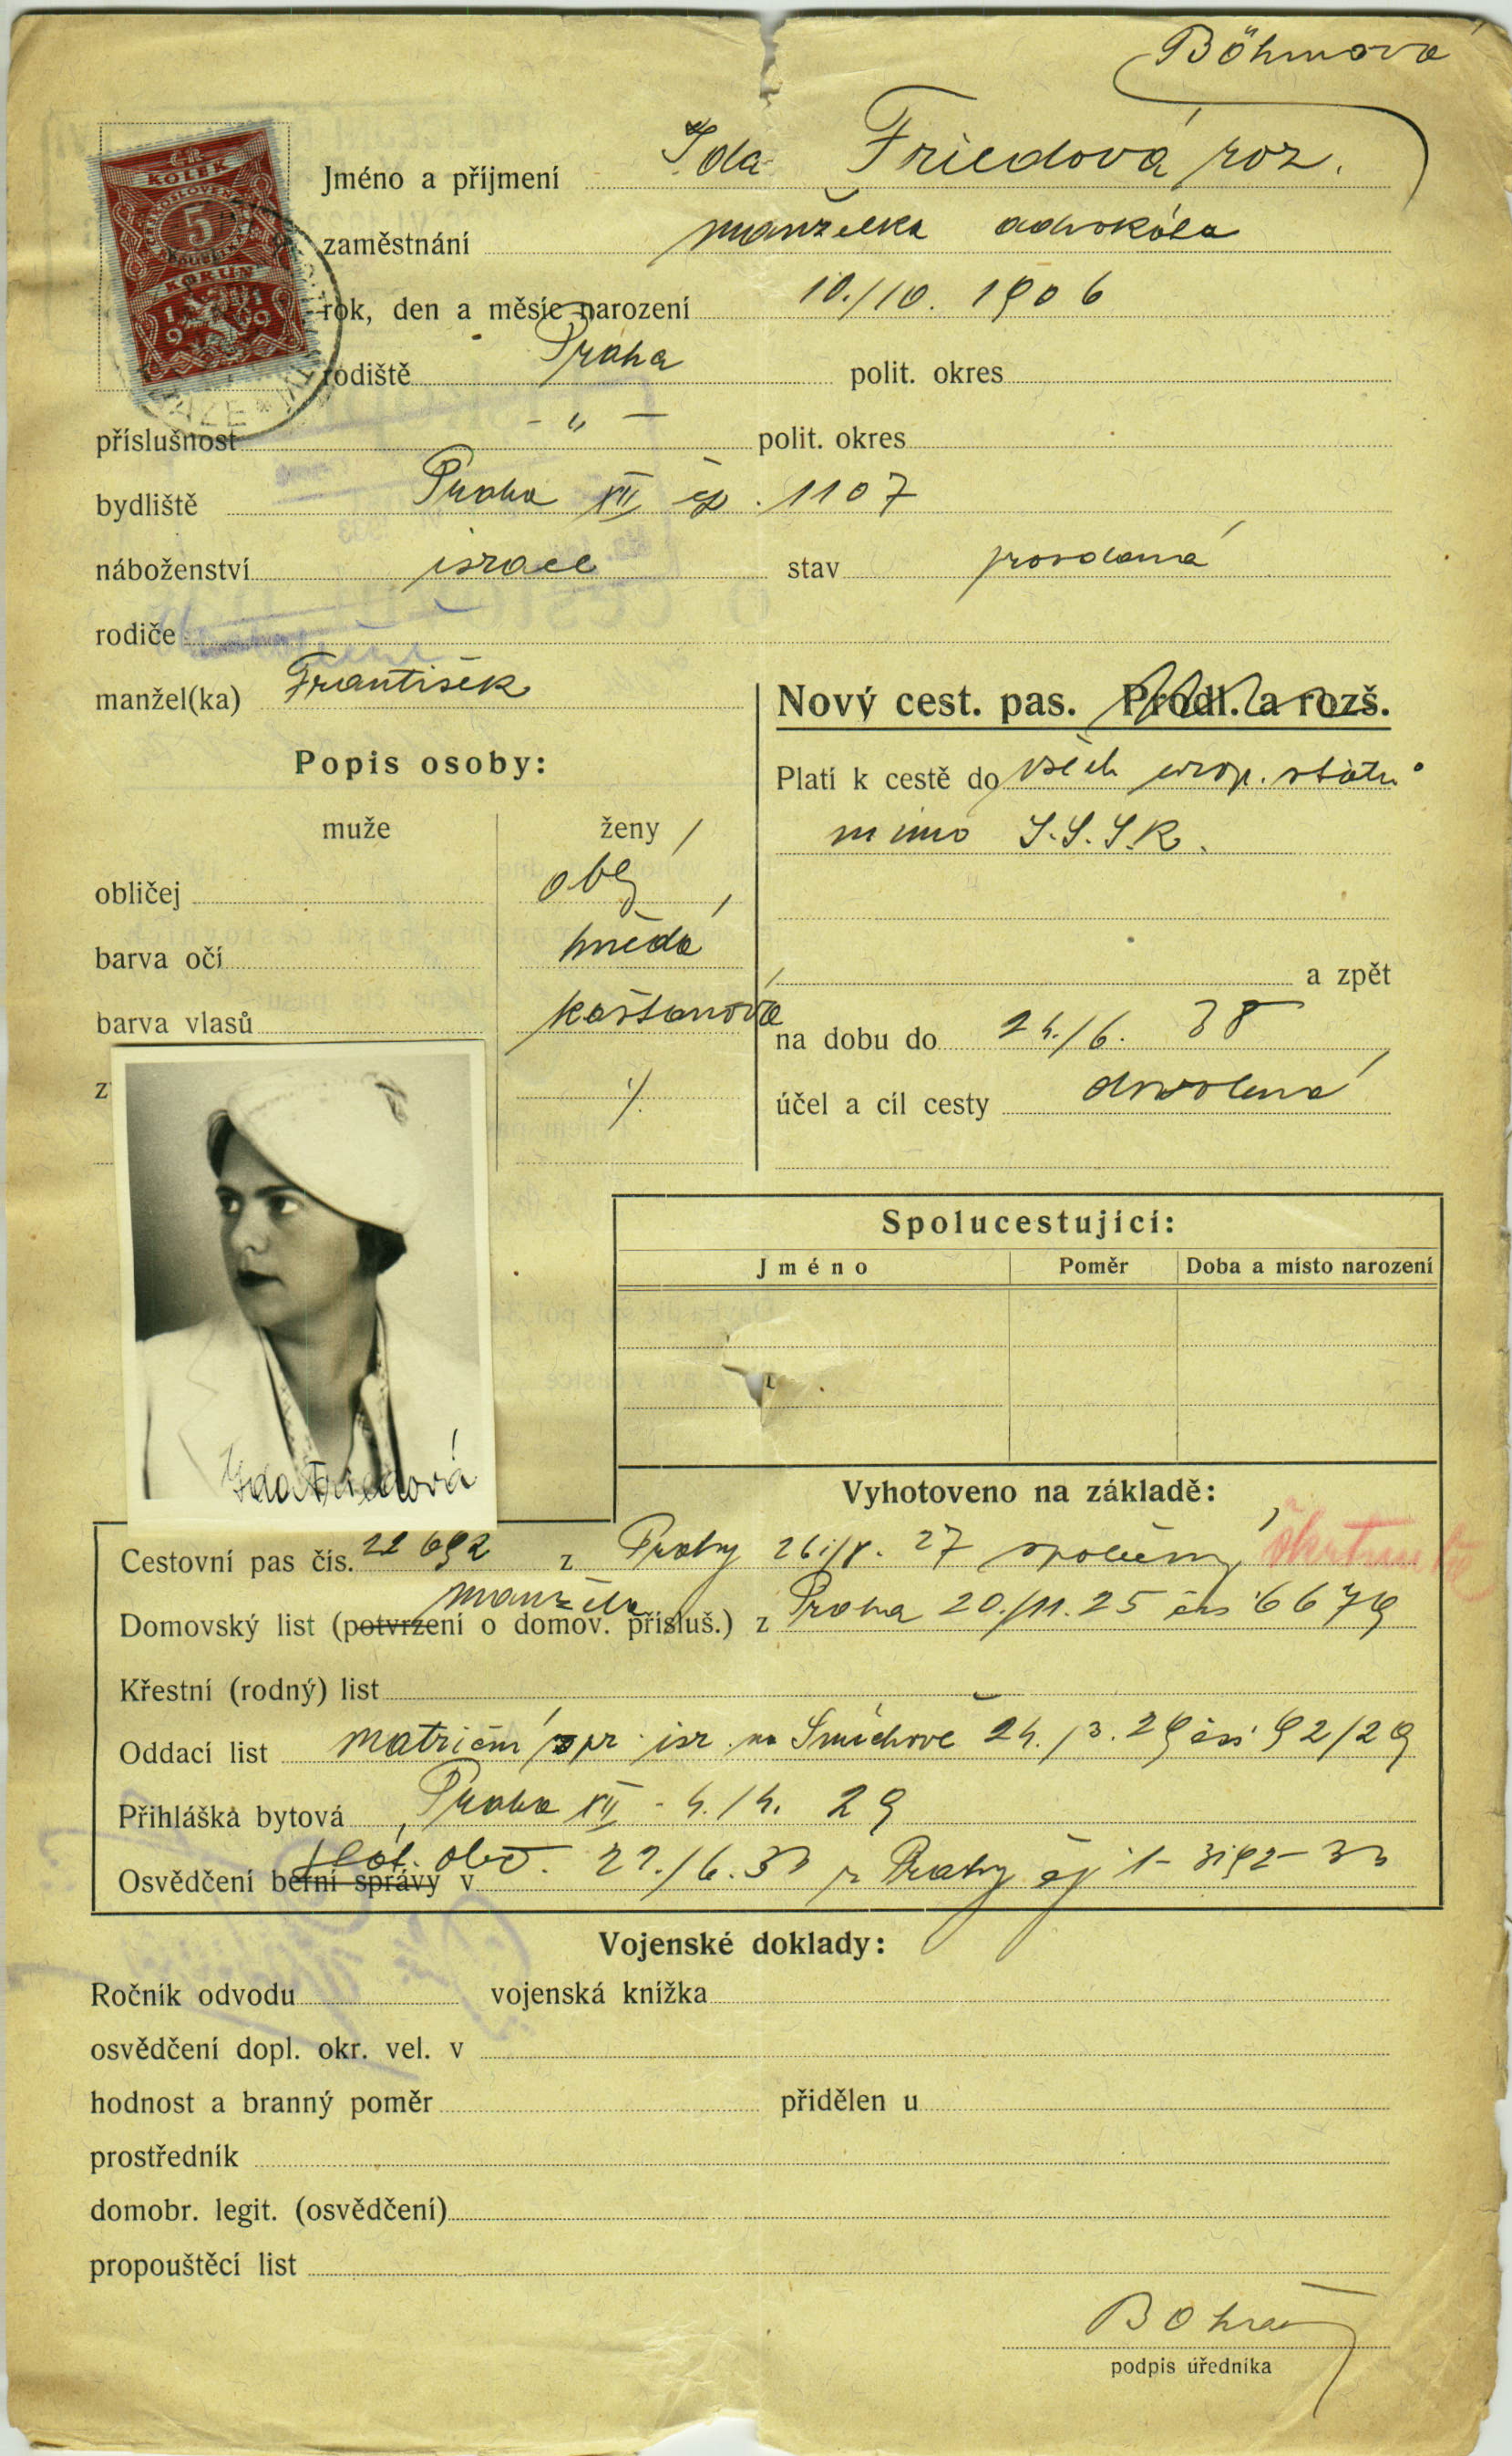 Böhmová
Jméno a příjmení Ida Friedová roz.
zaměstnání manželka advokáta
rok, den a měsíc narození 10./10. 1906
rodiště Praha polit. okres
příslušnost - " - polit. okres
bydliště Praha VII čp. 1107
náboženství israel stav provdaná
rodiče
manžel(ka) František
Nový cest. pas. Prodl. a rozš.
Popis osoby:
Platí k cestě do všech evrop. států
muže ženy
mimo S.S.S.R.
obličej obl
barva očí hnědá
a zpět
barva vlasů kaštanová
na dobu do 24./6. 38
z
účel a cíl cesty dovolená
Spolucestující:
Jméno Poměr Doba a místo narození
Ida Friedová
Vyhotoveno na základě:
Cestovní pas čís. 22692 z Prahy 26./V. 27 společný
manžela
Domovský list (potvrzení o domov. přísluš.) z Praha 20./11. 25 čís 6679
Křestní (rodný) list
Oddací list matriční spr. isr. na Smíchově 24./3. 29 čís 92/29
Přihláška bytová Praha VII - 4./4. 29
plat. obv.
Osvědčení berní správy v 22./6. 33 z Prahy čj 1-3192-33
Vojenské doklady:
Ročník odvodu vojenská knížka
osvědčení dopl. okr. vel. v
hodnost a branný poměr přidělen u
prostředník
domobr. legit. (osvědčení)
propouštěcí list
podpis úředníka
KOLEK
5
KORUN